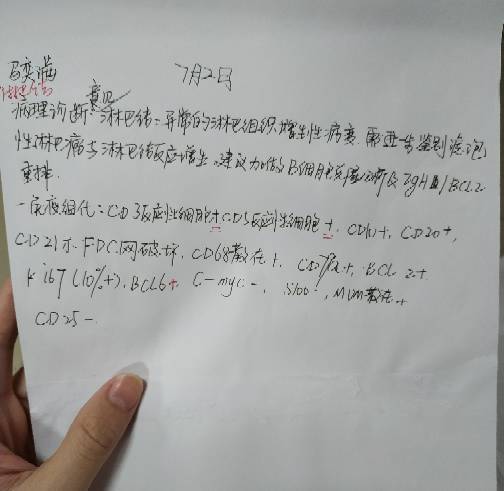 7月2日
病理诊断:淋巴结:异常的淋巴组织增生性病变.需进一步鉴别滤泡
意见
性淋巴瘤与淋巴结反应增生.建议加做B细胞基因重排分析及IgH/BCL2
重排.
一免疫组化:CD3反应性细胞+CD5反应性细胞+,CD10+,CD20+,
CD21示FDC网破坏,CD68散在+,CD79a+,BCL2+
Ki67(10%+),BCL6+ C-myc-, S100-,MUM散在+
CD25-